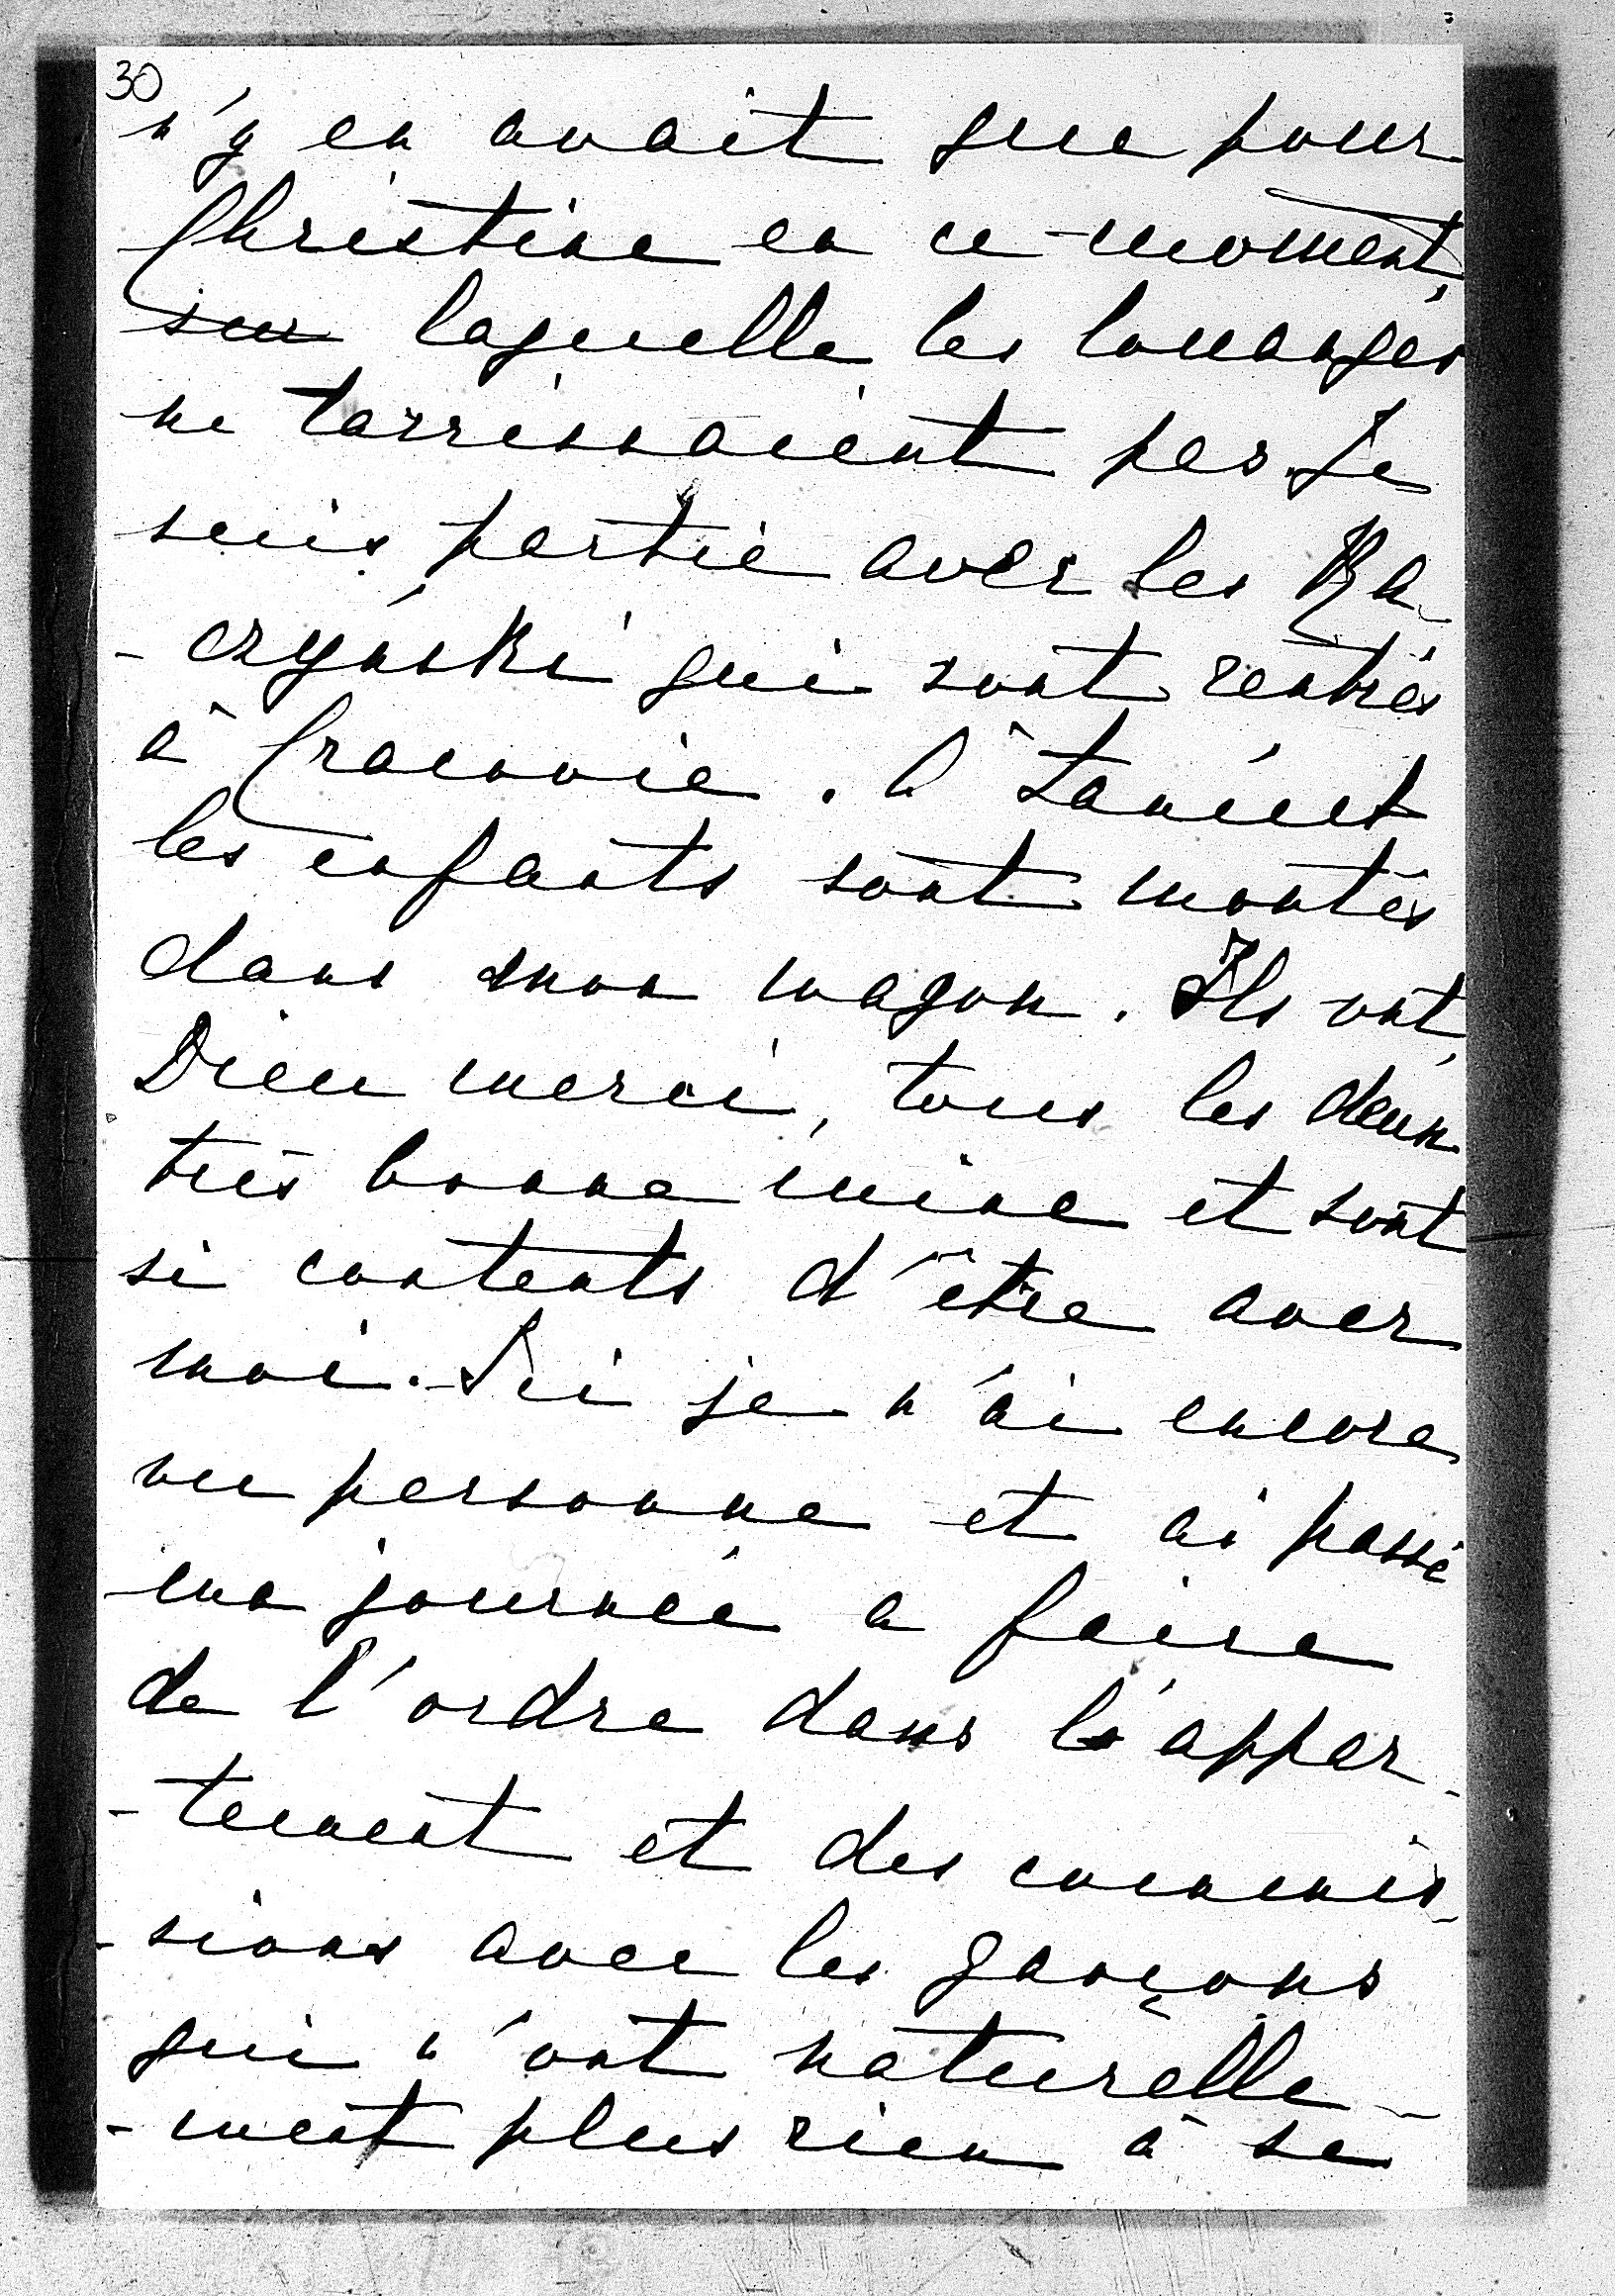 30
n'y en avait que pour
Christine en ce moment,
sur laquelle les louanges
ne tarrissaient pas. Je
suis partie avec les Ra-
-czyński qui sont rentrés
à Cracovie. A Łańcut
les enfants sont montés
dans mon wagon. Ils ont,
Dieu merci, tous les deux
très bonne mine et sont
si contents d'être avec
moi. Ici je n'ai encore
vu personne et ai passé
ma journée a faire
de l'ordre dans l'appar-
-tement et des commis-
-sions avec les garçons
qui n'ont naturelle-
-ment plus rien à se